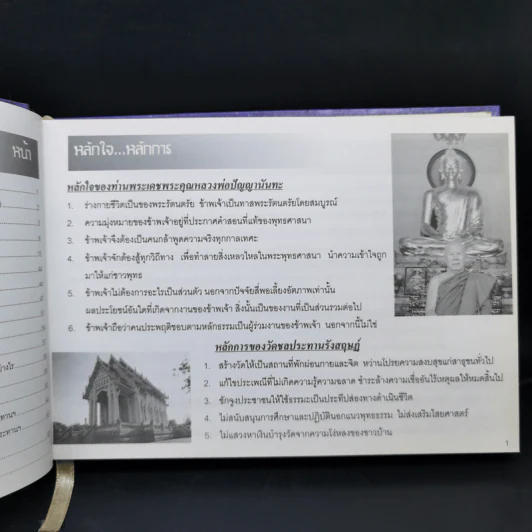 หน้า
หลักใจ...หลักการ
หลักใจของท่านพระเดชพระคุณหลวงพ่อปัญญานันทะ
1. ร่างกายชีวิตเป็นของพระรัตนตรัย ข้าพเจ้าเป็นทาสพระรัตนตรัยโดยสมบูรณ์
2. ความมุ่งหมายของข้าพเจ้าอยู่ที่ประกาศคำสอนที่แท้ของพุทธศาสนา
3. ข้าพเจ้าจึงต้องเป็นคนกล้าพูดความจริงทุกกาลเทศะ
4. ข้าพเจ้าจักต้องสู้ทุกวิถีทาง เพื่อทำลายสิ่งเหลวไหลในพระพุทธศาสนา นำความเข้าใจถูก
มาให้แก่ชาวพุทธ
5. ข้าพเจ้าไม่ต้องการอะไรเป็นส่วนตัว นอกจากปัจจัยสี่พอเลี้ยงอัตภาพเท่านั้น
ผลประโยชน์อันใดที่เกิดจากงานของข้าพเจ้า สิ่งนั้นเป็นของงานที่เป็นส่วนรวมต่อไป
6. ข้าพเจ้าถือว่าคนประพฤติชอบตามหลักธรรมเป็นผู้ร่วมงานของข้าพเจ้า นอกจากนี้ไม่ใช่
หลักการของวัดชลประทานรังสฤษฏ์
1. สร้างวัดให้เป็นสถานที่พักผ่อนกายและจิต หว่านโปรยความสงบสุขแก่สาธุชนทั่วไป
2. แก้ไขประเพณีที่ไม่เกิดความรู้ความฉลาด ชำระล้างความเชื่ออันไร้เหตุผลให้หมดสิ้นไป
3. ชักจูงประชาชนให้ใช้ธรรมะเป็นประทีปส่องทางดำเนินชีวิต
4. ไม่สนับสนุนการศึกษาและปฏิบัตินอกแนวพุทธธรรม ไม่ส่งเสริมไสยศาสตร์
5. ไม่แสวงหาเงินบำรุงวัดจากความโง่หลงของชาวบ้าน
1